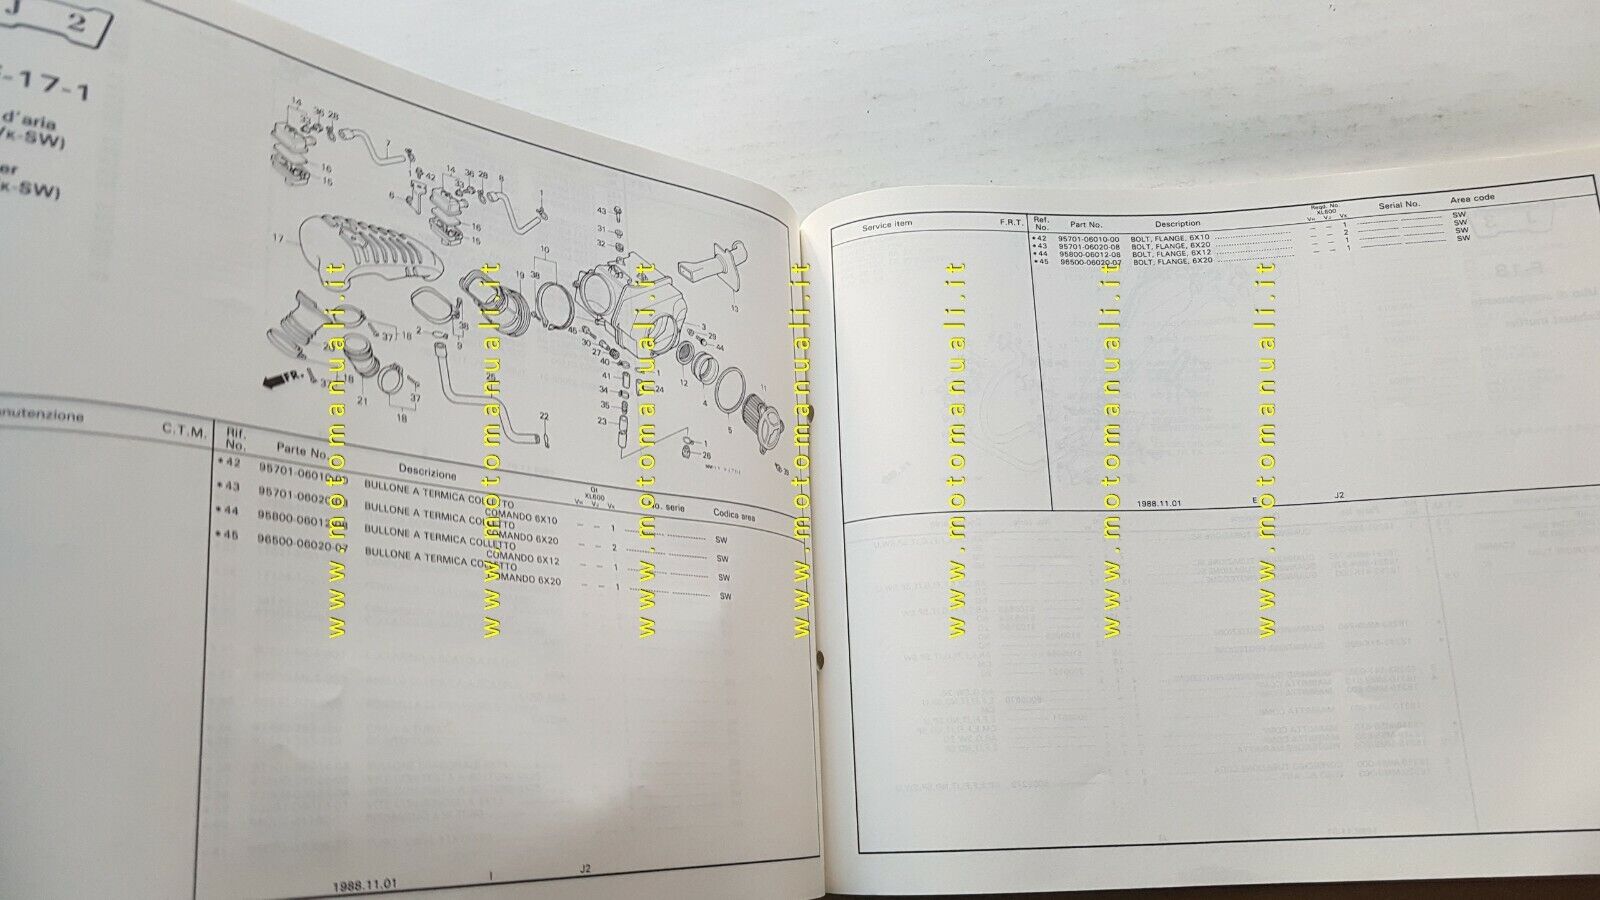 J 2
-17-1
d'aria
/K-SW)
er
K-SW)
14
33
36
28
7
1
16
15
42
6
14
33
36
28
8
1
16
15
43
31
32
17
10
19
38
13
2
38
9
37
18
20
FR.
37
18
21
37
18
25
22
45
30
27
40
41
34
35
23
1
24
1
26
3
29
44
12
4
5
11
39
nutenzione
C.T.M.
Rif. No.
Parte No.
Descrizione
Qt XL600
VH VJ VK
No. serie
Codica area
*42 95701-06010-00 BULLONE A TERMICA COLLETTO
COMANDO 6X10 – – 1 SW
*43 95701-06020-08 BULLONE A TERMICA COLLETTO
COMANDO 6X20 – – 2 SW
*44 95800-06012-08 BULLONE A TERMICA COLLETTO
COMANDO 6X12 – – 1 SW
*45 96500-06020-07 BULLONE A TERMICA COLLETTO
COMANDO 6X20 – – 1 SW
1988.11.01 I J2
Service item
F.R.T.
Ref. No.
Part No.
Description
Reqd. No. XL600
VH VJ VK
Serial No.
Area code
*42 95701-06010-00 BOLT, FLANGE, 6X10 – – 1 SW
*43 95701-06020-08 BOLT, FLANGE, 6X20 – – 2 SW
*44 95800-06012-08 BOLT, FLANGE, 6X12 – – 1 SW
*45 96500-06020-07 BOLT, FLANGE, 6X20 – – 1 SW
1988.11.01 E J2
www.motomanuali.it
www.motomanuali.it
www.motomanuali.it
www.motomanuali.it
www.motomanuali.it
www.motomanuali.it
www.motomanuali.it